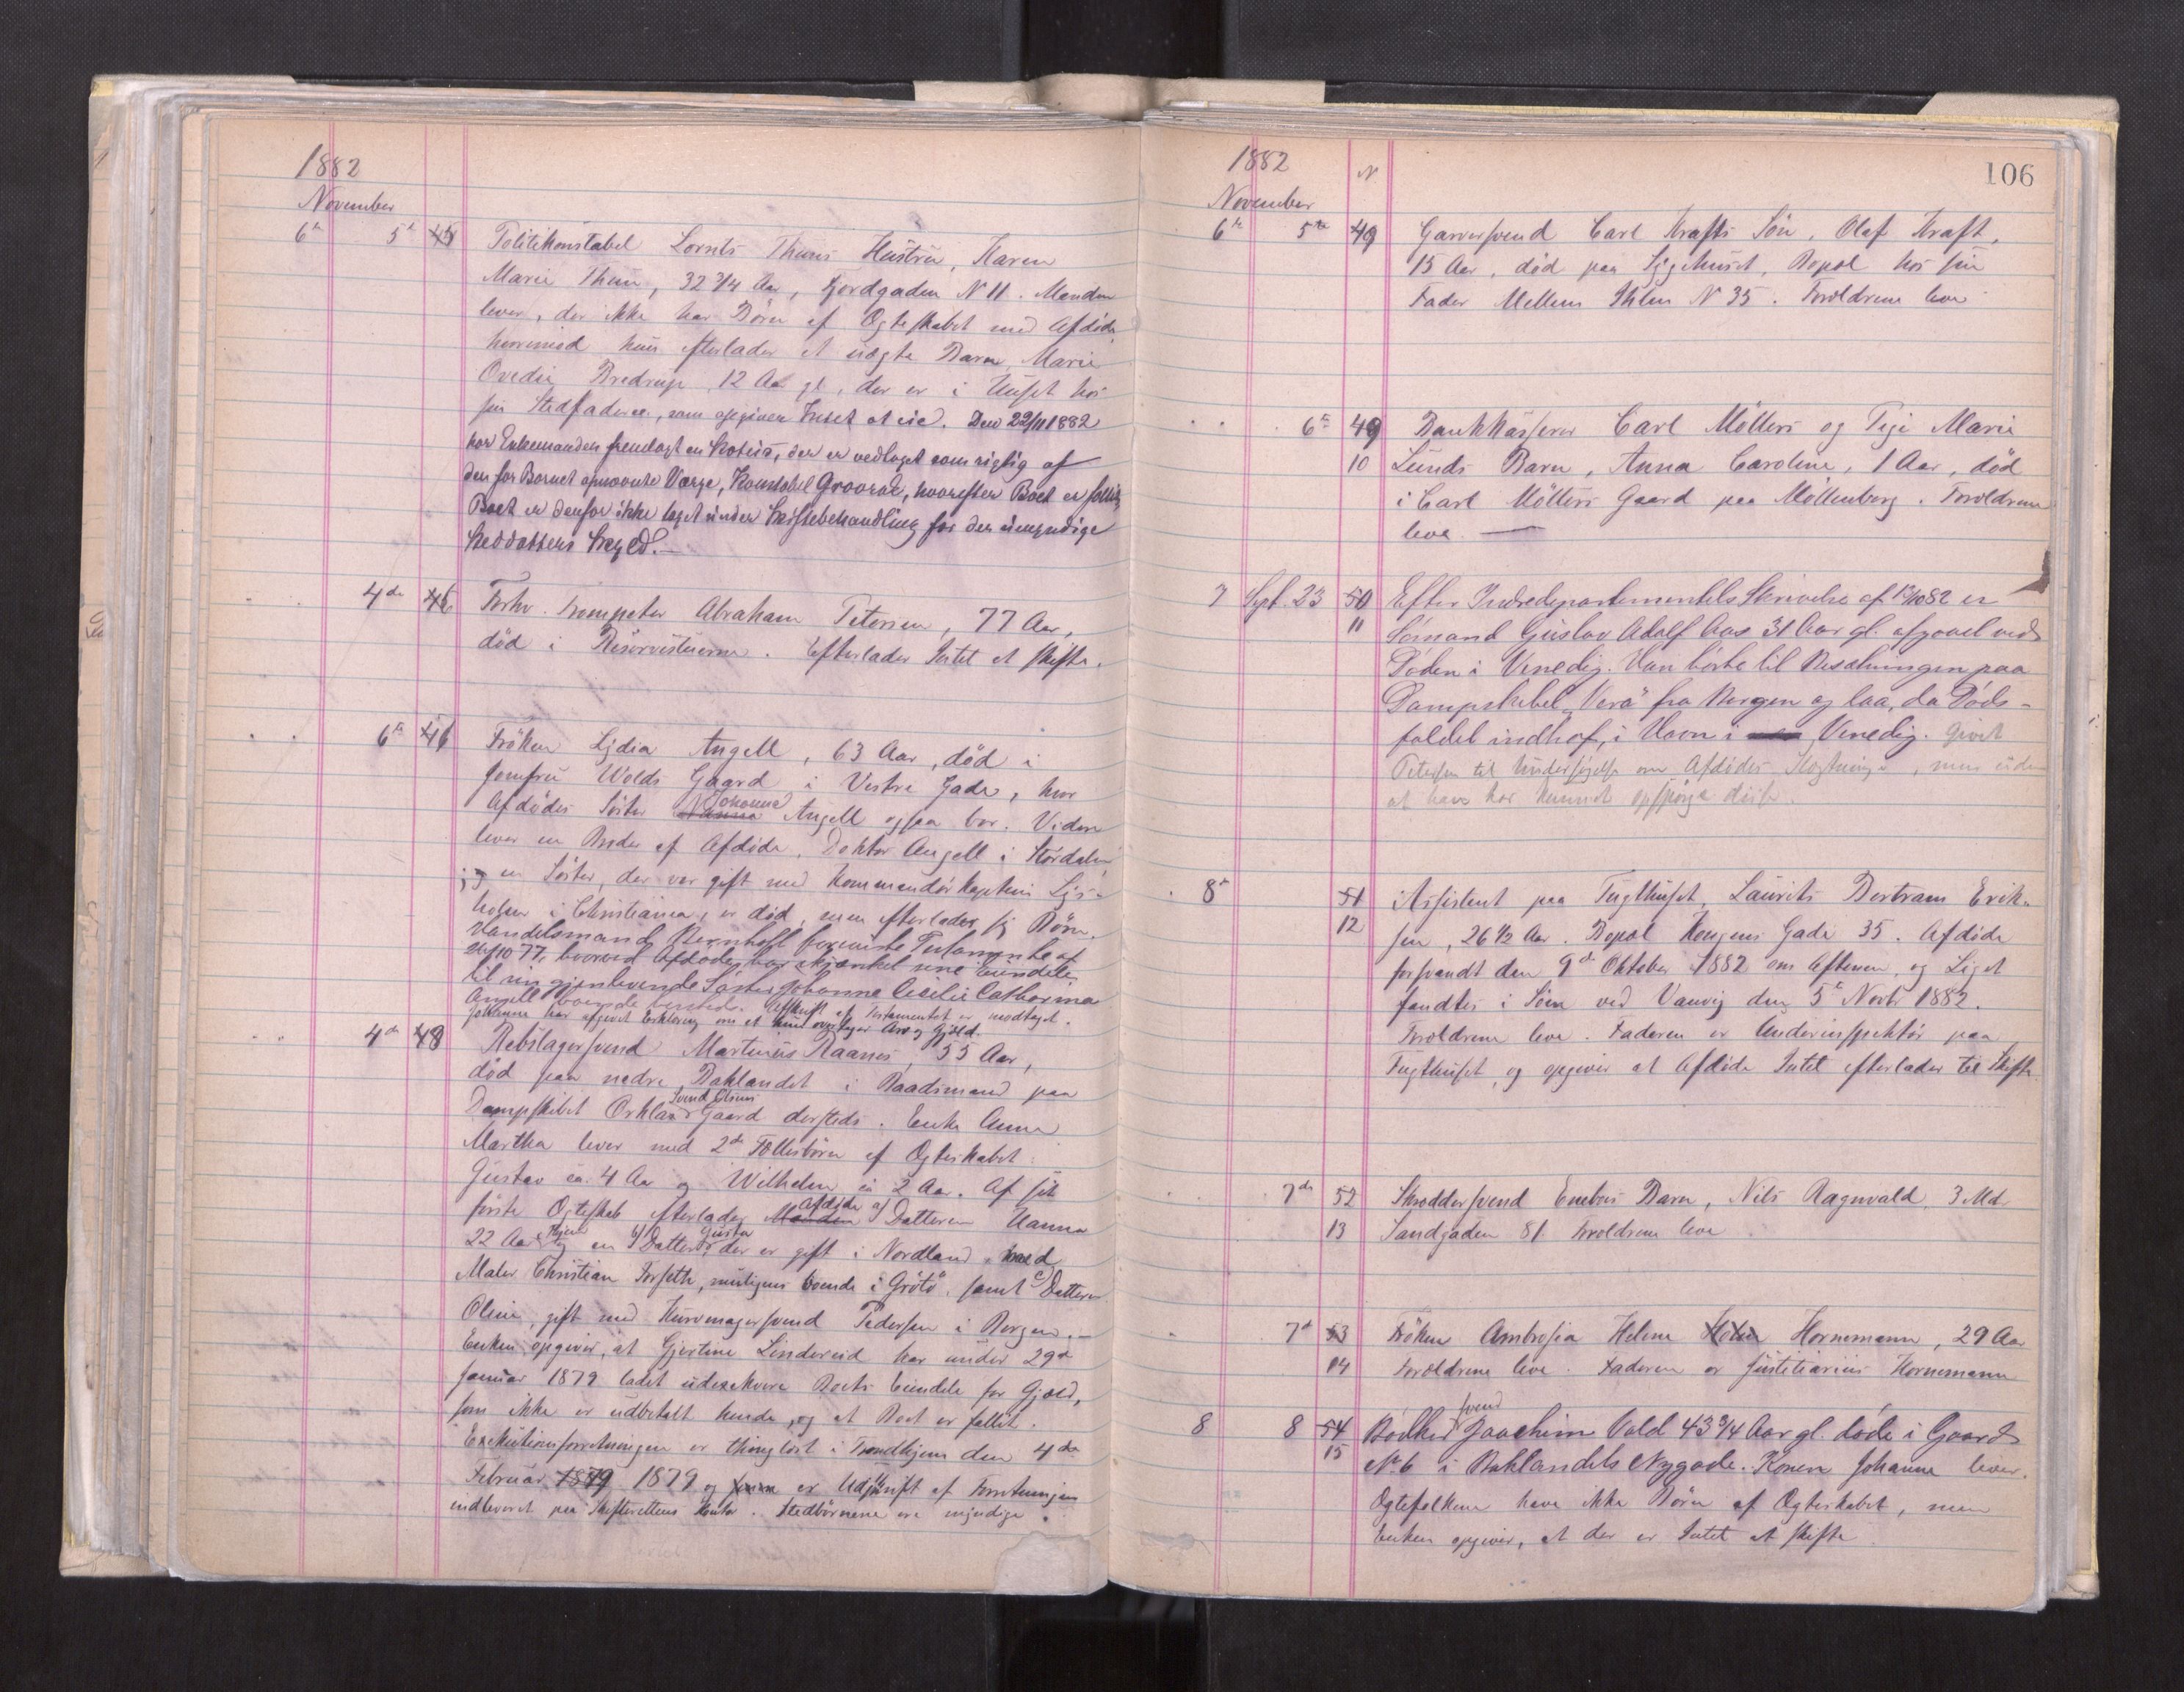 1882
November
6te 5te 45 Politikonstabel Lornts Thuns Hustru, Karen
Marie Thun, 32 3/4 Aar, Fjordgaden N 11. Manden
lever, der ikke har Børn af Ægteskabet med Afdøde,
hvorimod hun efterlader et uægte Barn, Marie
Ovedie Bredrup 12 Aar gl, der er i Huset hos
sin Stedfader, som opgiver Intet at eie. Den 22/11 1882
har Enkemanden fremlagt en Status, der er vedtaget som rigtig af
den for Barnet opnævnte Værge, Konstabel, hvorefter Boet er fallit,
Boet er derfor ikke taget under Skiftebehandling for den umyndige
Steddatters Skyld.
4de 46 Forhv. Trompeter Abraham Petersen, 77 Aar,
død i. Efterlader Intet at skifte.
6te 46 Frøken Lydia Angell, 63 Aar, død i
Jomfru Wolds Gaard i Vestre Gade, hvor
Afdødes Søster Johanna Angell ogsaa bor. Videre
lever en Broder af Afdøde, Doktor Angell i Størdalen
; og en Søster, der var gift med Kommandørkaptein Lys-
holm i Christiania, er død, men efterlader sig Børn.
Handelsmand Bernhoft foreviste Testamente af
26/10 77, hvorved Afdøde har skjænket sine Eiendele
til sin gjenlevende Søster Johanne Cecilie Catharina
Angell boende hersteds. Afskrift af Testamentet er modtaget.
Johanna har afgivet Erklæring om at hun overtager Arv og Gjæld.
4de 48 Rebslagersvend Martinus Raanes, 55 Aar,
død paa nedre Baklandet i Baadsmand paa
Dampskibet Orkla Svend Olsens Gaard dersteds. Enke Anna
Martha lever med 2de Fællesbørn af Ægteskabet:
Gustav ca. 4 Aar og Wilhelm ca 2 Aar. Af sit
første Ægteskab efterlader Afdøde a) Datteren Hanna
22 Aar og en b) Datter Gusta der er gift i Nordland med
Maler Christian Forseth, muligens boende i Grøtø, samt c) Datteren
Oline, gift med Kurvmagersvend Pedersen i Bergen.
Enken opgiver, at Gjertine Lindereid har under 29de
Januar 1879 ladet udexekvere Boets Eiendele for Gjæld,
som ikke er udbetalt hende, og at Boet er fallit.
Exekutionsforretningen er thinglæst i Trondhjem den 4de
Februar 1879 1879 og er Udskrift af Forretningen
indleveret paa Skifterettens Kontor. Stedbørnene ere myndige.
1882 N 106
November
6te 5te 49 Garversvend Carl Krafts Søn, Olaf Kraft,
15 Aar, død paa Sygehuset, Bopæl hos sin
Fader Mellem Ihlen N 35. Forældrene leve
6te 49 Bankkasserer Carl Møllers og Pige Marie
10 Lunds Barn, Anna Caroline, 1 Aar, død
i Carl Møllers Gaard paa Møllenberg. Forældrene
leve.
7 Sept. 23 50 Efter Indredepartementets Skrivelse af 12/10 82 er
11 Sømand Gustav Adolf Aas 31 Aar gl. afgaaet ved
Døden i Venedig. Han hørte til Besætningen paa
Dampskibet "Vera" fra Bergen og laa, da Døds-
faldet indtraf, i Havn i Venedig. Givet
Petersen til Undersøgelse om Afdødes Slægtninge, men uden
at have kunnet opspørge disse.
8de 51 Assistent paa Tugthuset, Laurits Bertram Erik-
12 sen, 26 1/2 Aar. Bopæl Kongens Gade 35. Afdøde
forsvandt den 9de Oktober 1882 om Aftenen, og Liget
fandtes i Søen ved Vanvig den 5te Novbr 1882.
Forældrene leve. Faderen er Underinspektør paa
Tugthuset, og opgiver at Afdøde Intet efterlader til Skifte
7de 52 Skræddersvend Enebos Barn, Nils Ragnvald, 3 Md.
13 Sandgaden 81. Forældrene leve.
7de 53 Frøken Ambrosia Helene Hornemann, 29 Aar
14 Forældrene leve. Faderen er Justitiarius Hornemann
8 8 54 Bødkersvend Joachim Vold 43 3/4 Aar gl. døde i Gaard
15 No 6 i Baklandets Nygade. Konen Johanna lever.
Ægtefolkene have ikke Børn af Ægteskabet, men
Enken opgiver, at der er Intet at skifte